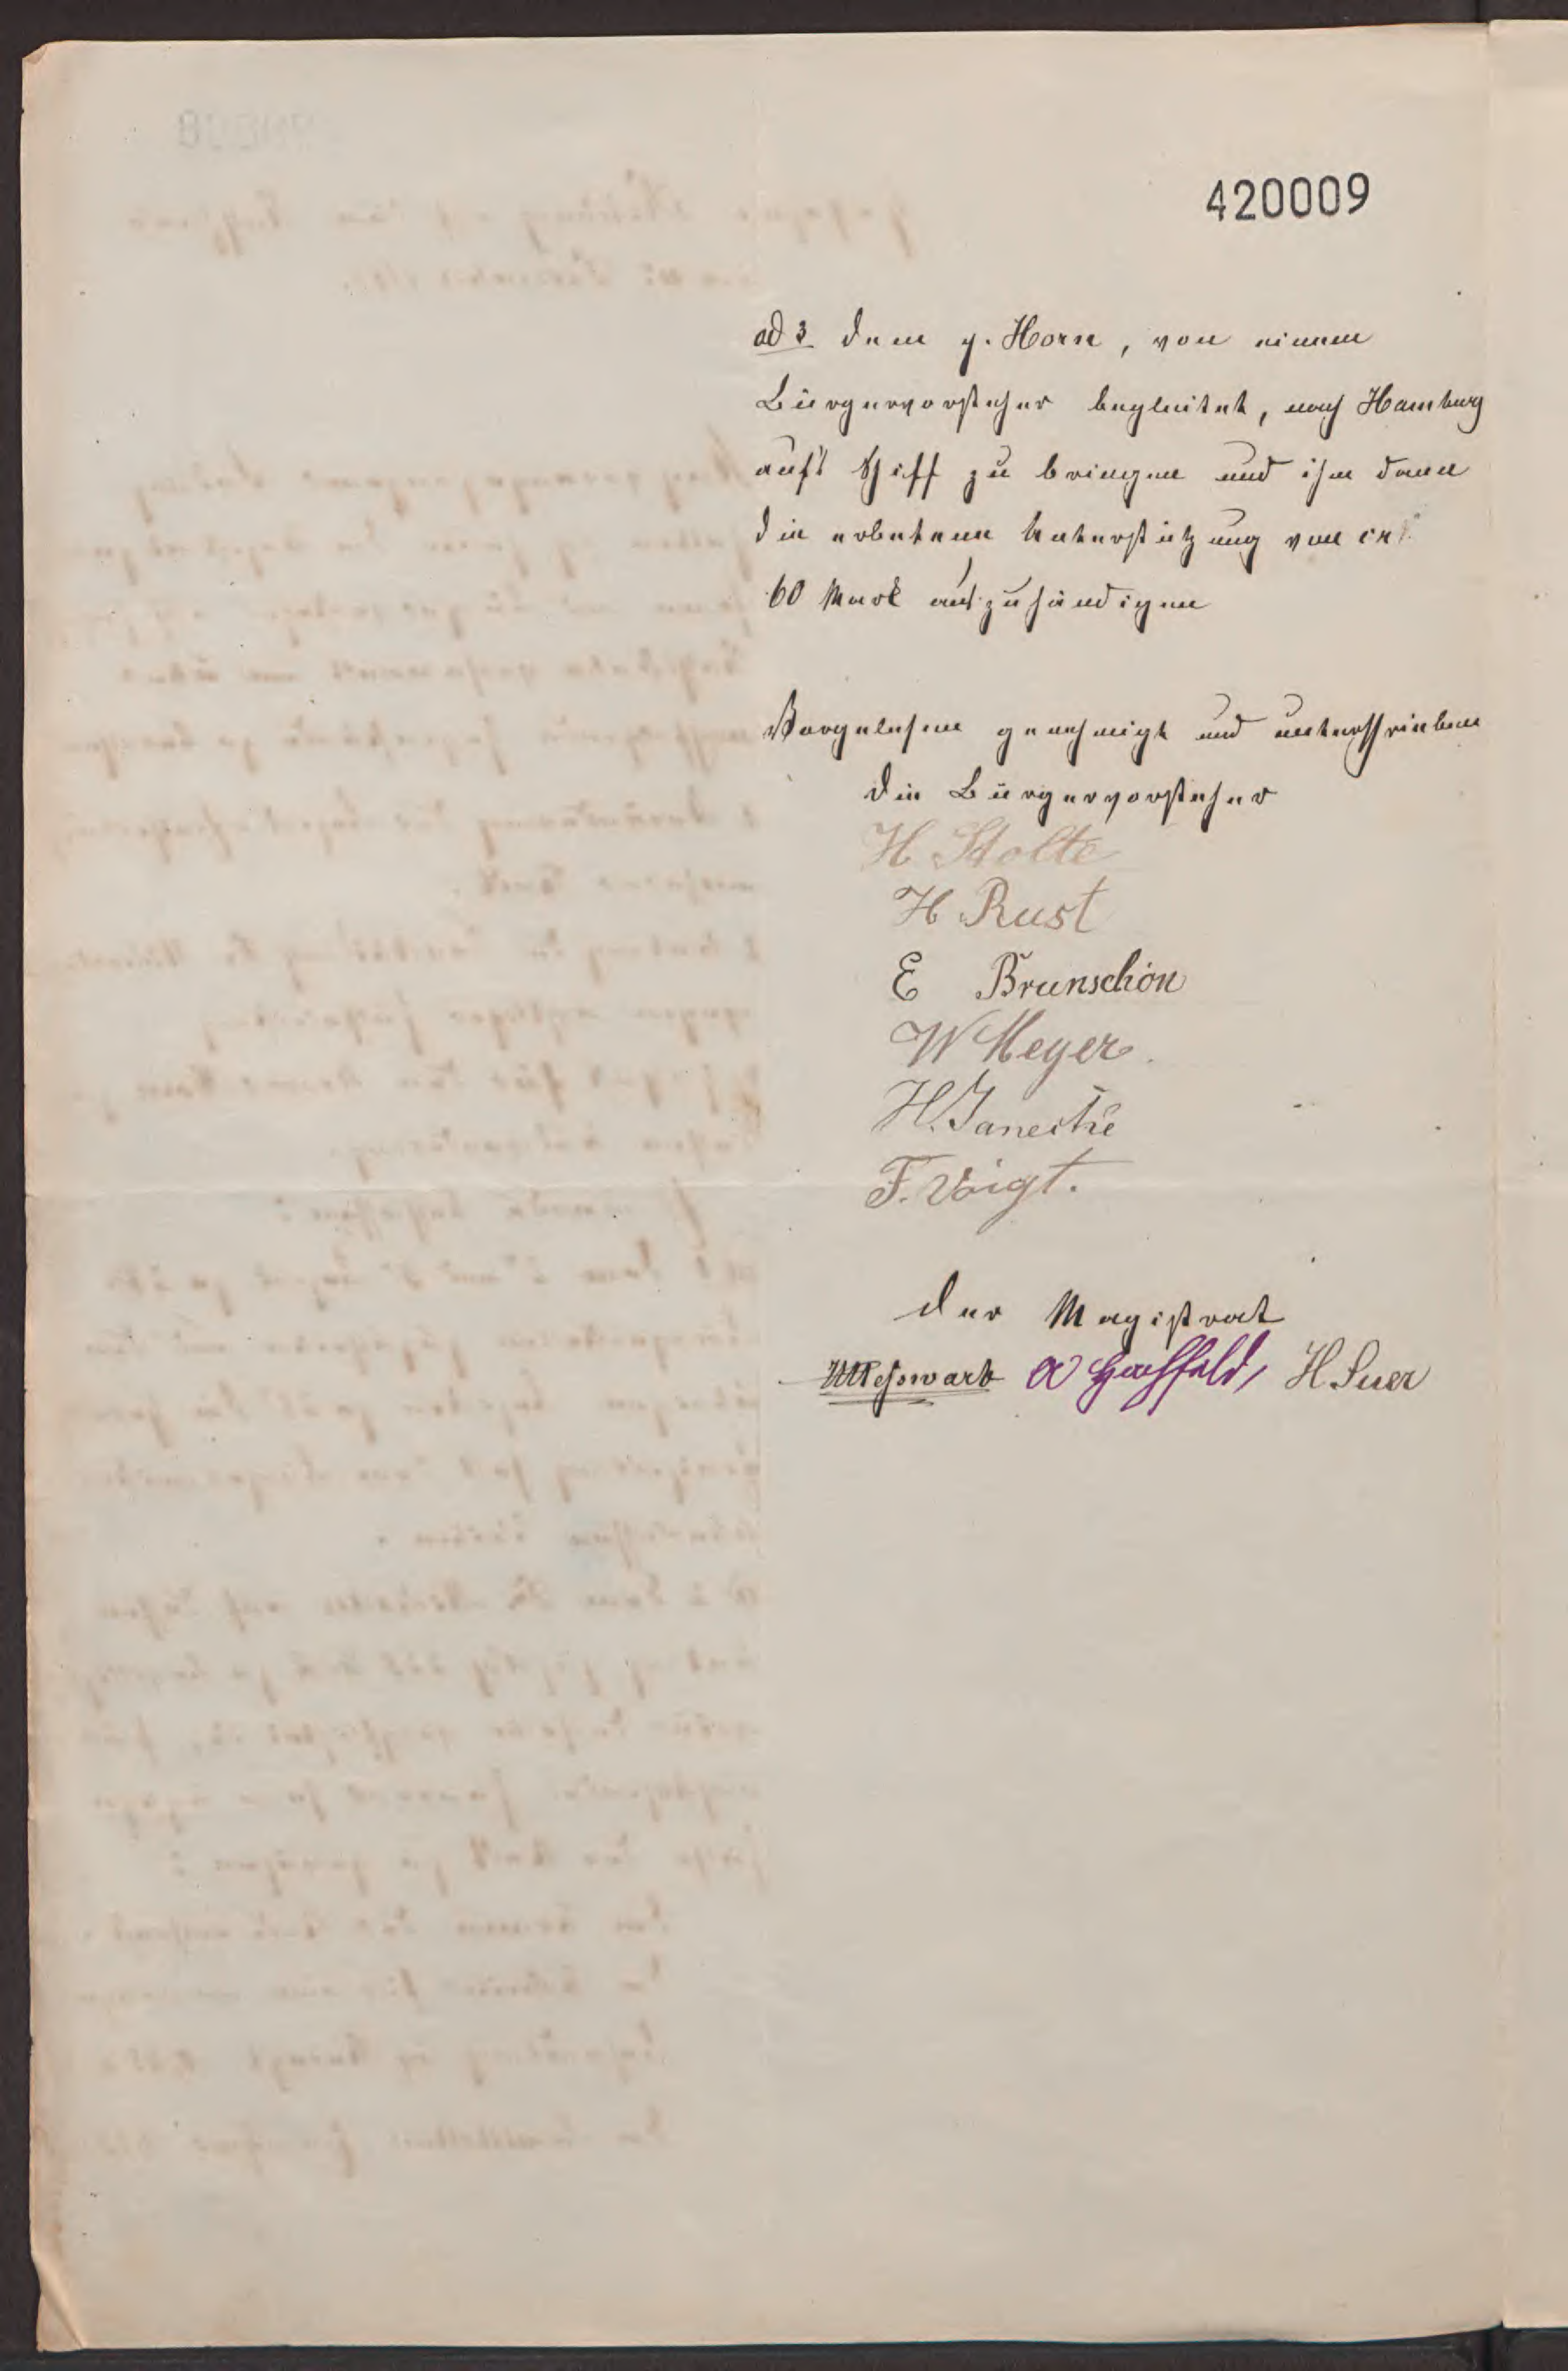 420009
ad 3 dem p. Horn, von einem
Bürgervorsteher begleitet, nach Hamburg
auf's Schiff zu bringen und ihm dann
die erbetene Unterstützung von
60 Mark auszuhändigen
Vorgelesen genehmigt und unterschrieben
Die Bürgervorsteher
H Stolte
H. Rust
E Brunschön
W Meyer.
H. Janecke
F. Voigt.
Der Magistrat
H Suer